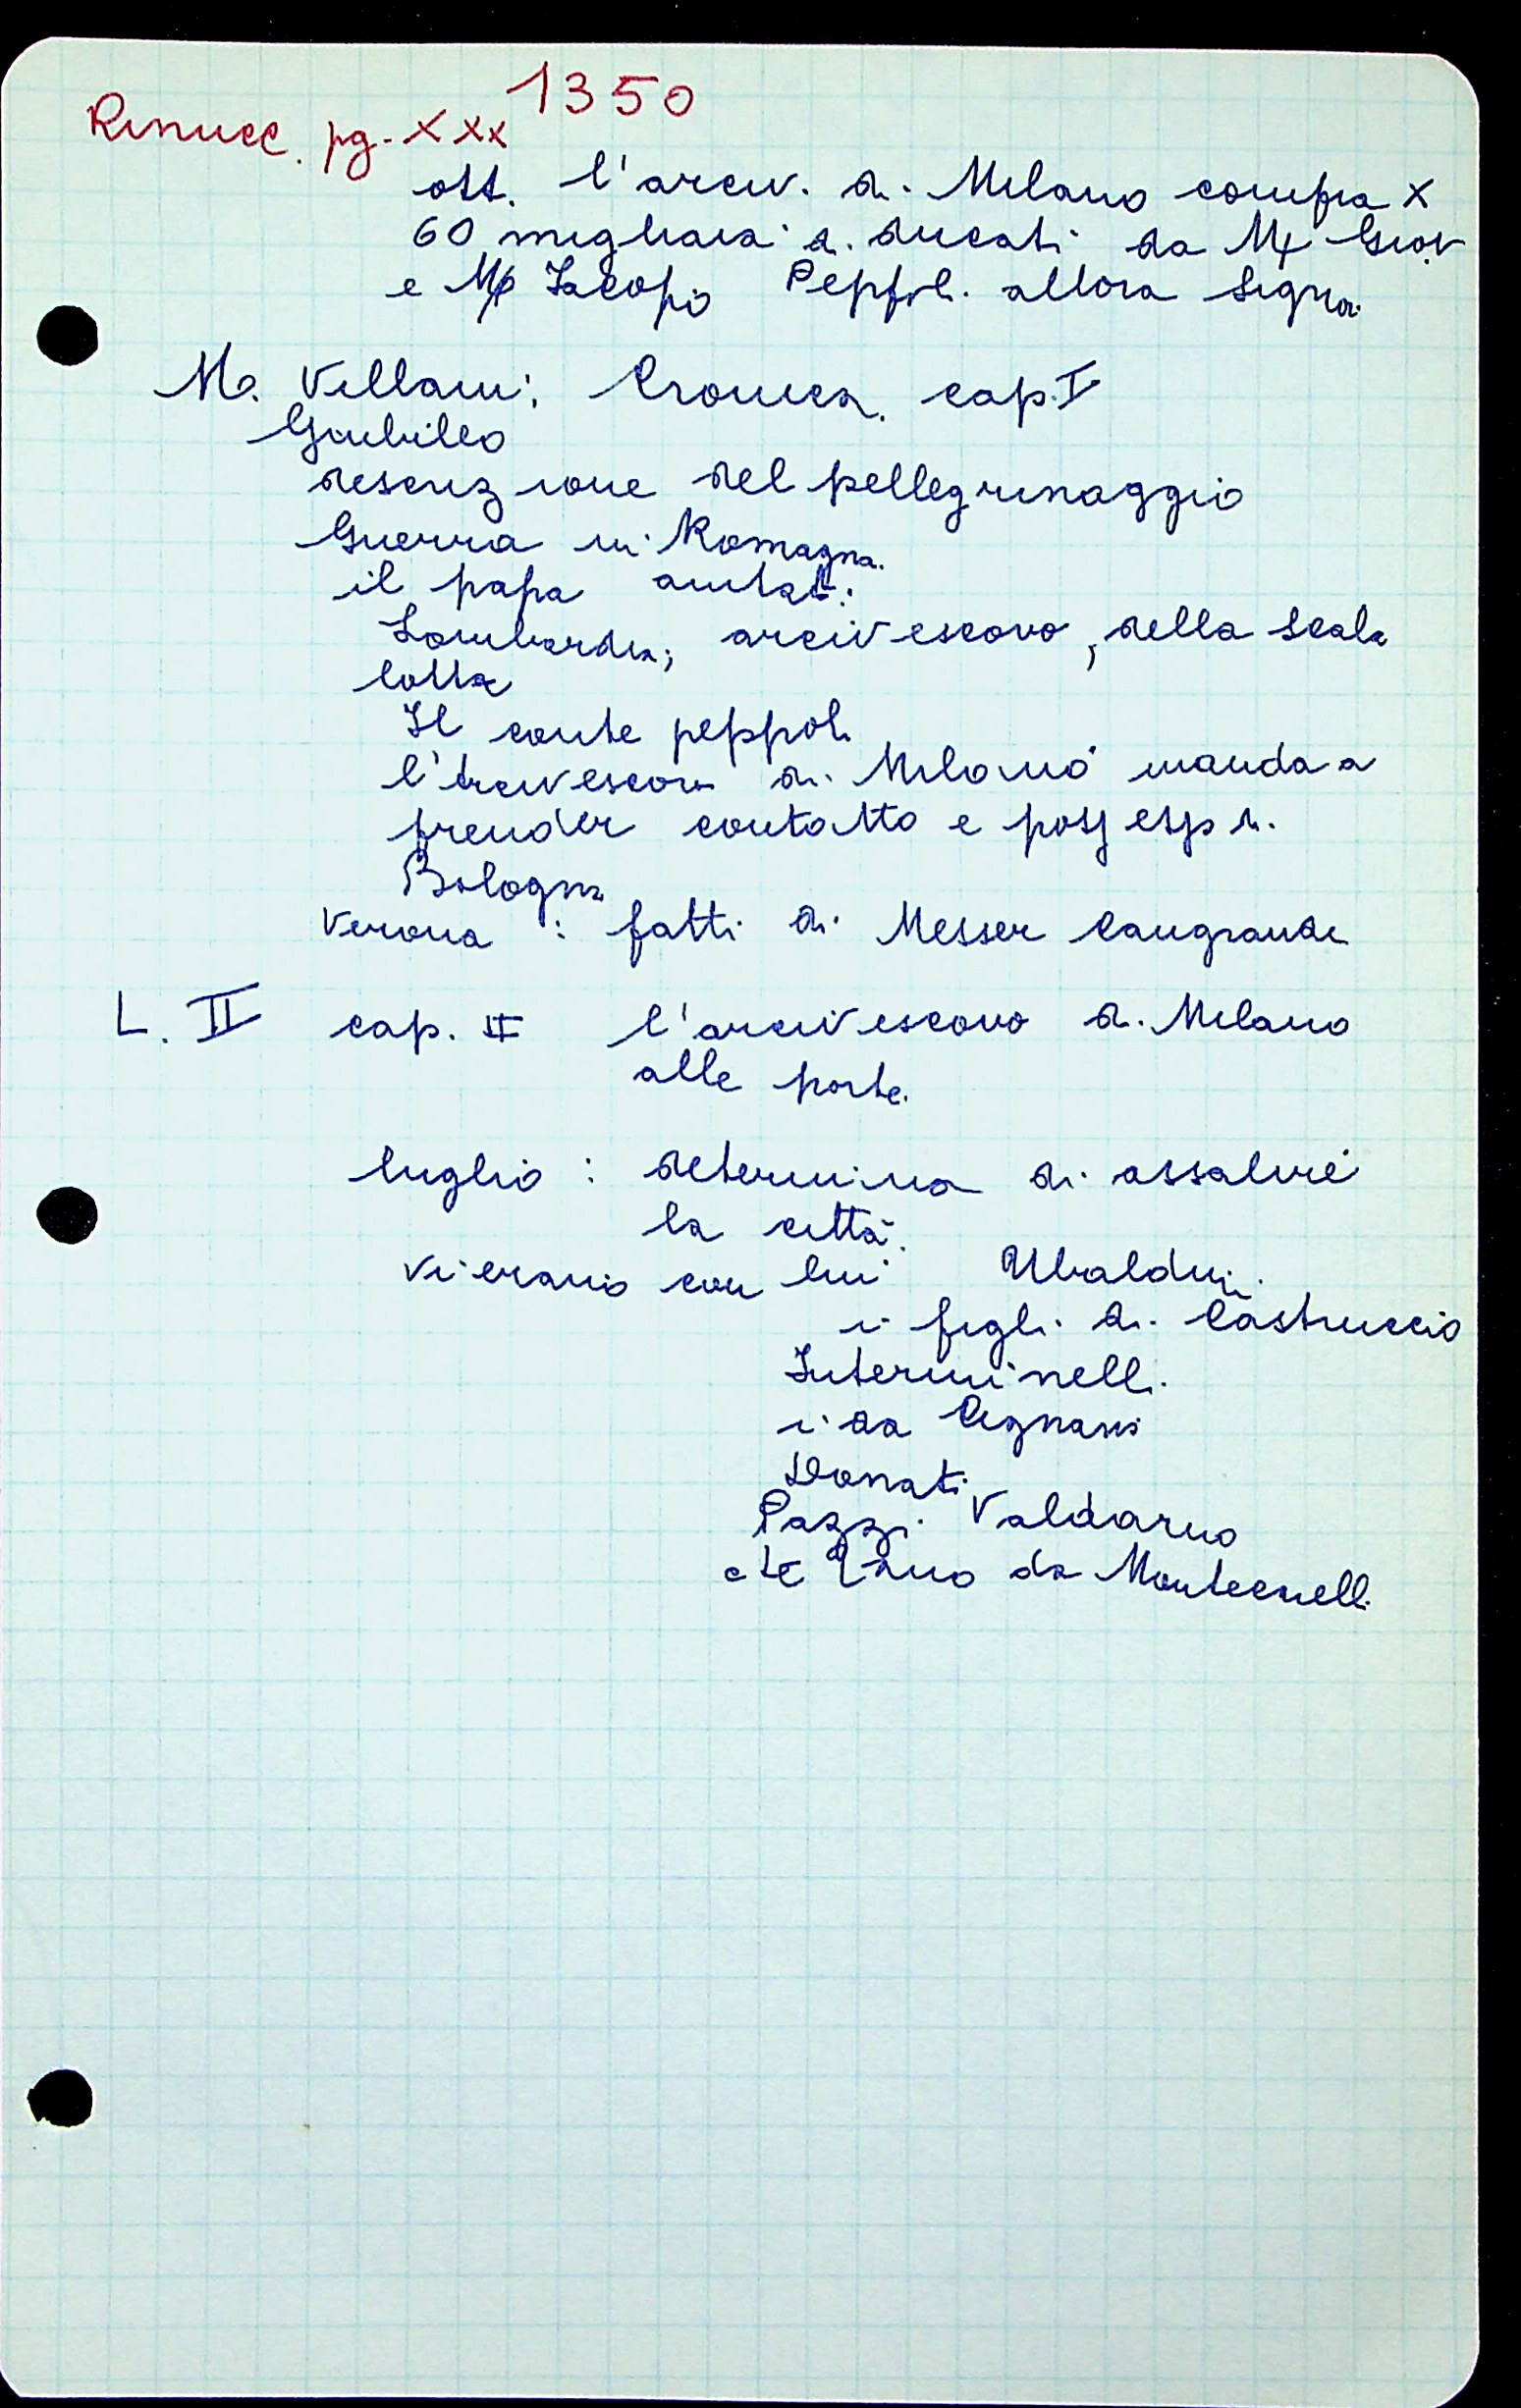 1350
Rinucc. pg. XXX
ott. l'arciv. di Milano compra x
60 migliaia di ducati da Mp Giov.
e Mp Jacopo Peppoli allora Signori
M. Villani; Cronica. cap. I
Giubileo
descrizione del pellegrinaggio
Guerra in Romagna.
il papa
Lombardia; arcivescovo, della Scala
lotta
Il conte peppoli
l'arcivescovo di Milano manda a
prender contatto e possesso di
Bologna
Verona : fatti di Messer Cangrande
L. II cap. II l'arcivescovo di Milano
alle porte.
luglio : determina di assalire
la città.
vi erano con lui Ubaldini.
i figli di Castruccio
Interminelli.
i da
Donati
Pazzi Valdarno
da